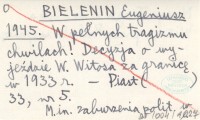 BIELENIN Eugeniusz
1945. W pełnych tragizmu
chwilach! Decyzja o wy-
jeździe W. Witosa za granicę
w 1933 r. — Piast
33, nr 5.
M.in. zaburzenia polit. w